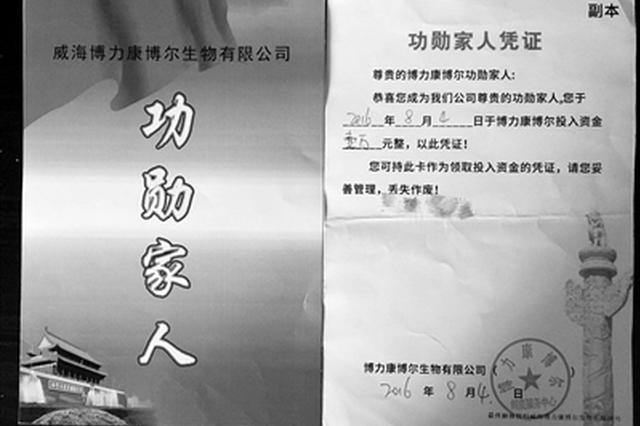 威海博力康博尔生物有限公司
功勋家人
副本
功勋家人凭证
尊贵的博力康博尔功勋家人:
恭喜您成为我们公司尊贵的功勋家人,您于
2016 年 8 月 4 日于博力康博尔投入资金
壹万 元整，以此凭证！
您可持此卡作为领取投入资金的凭证，请您妥
善管理，丢失作废！
博力康博尔生物有限公司（
博力康博尔
服务中心
2016 年 8 月 4 日